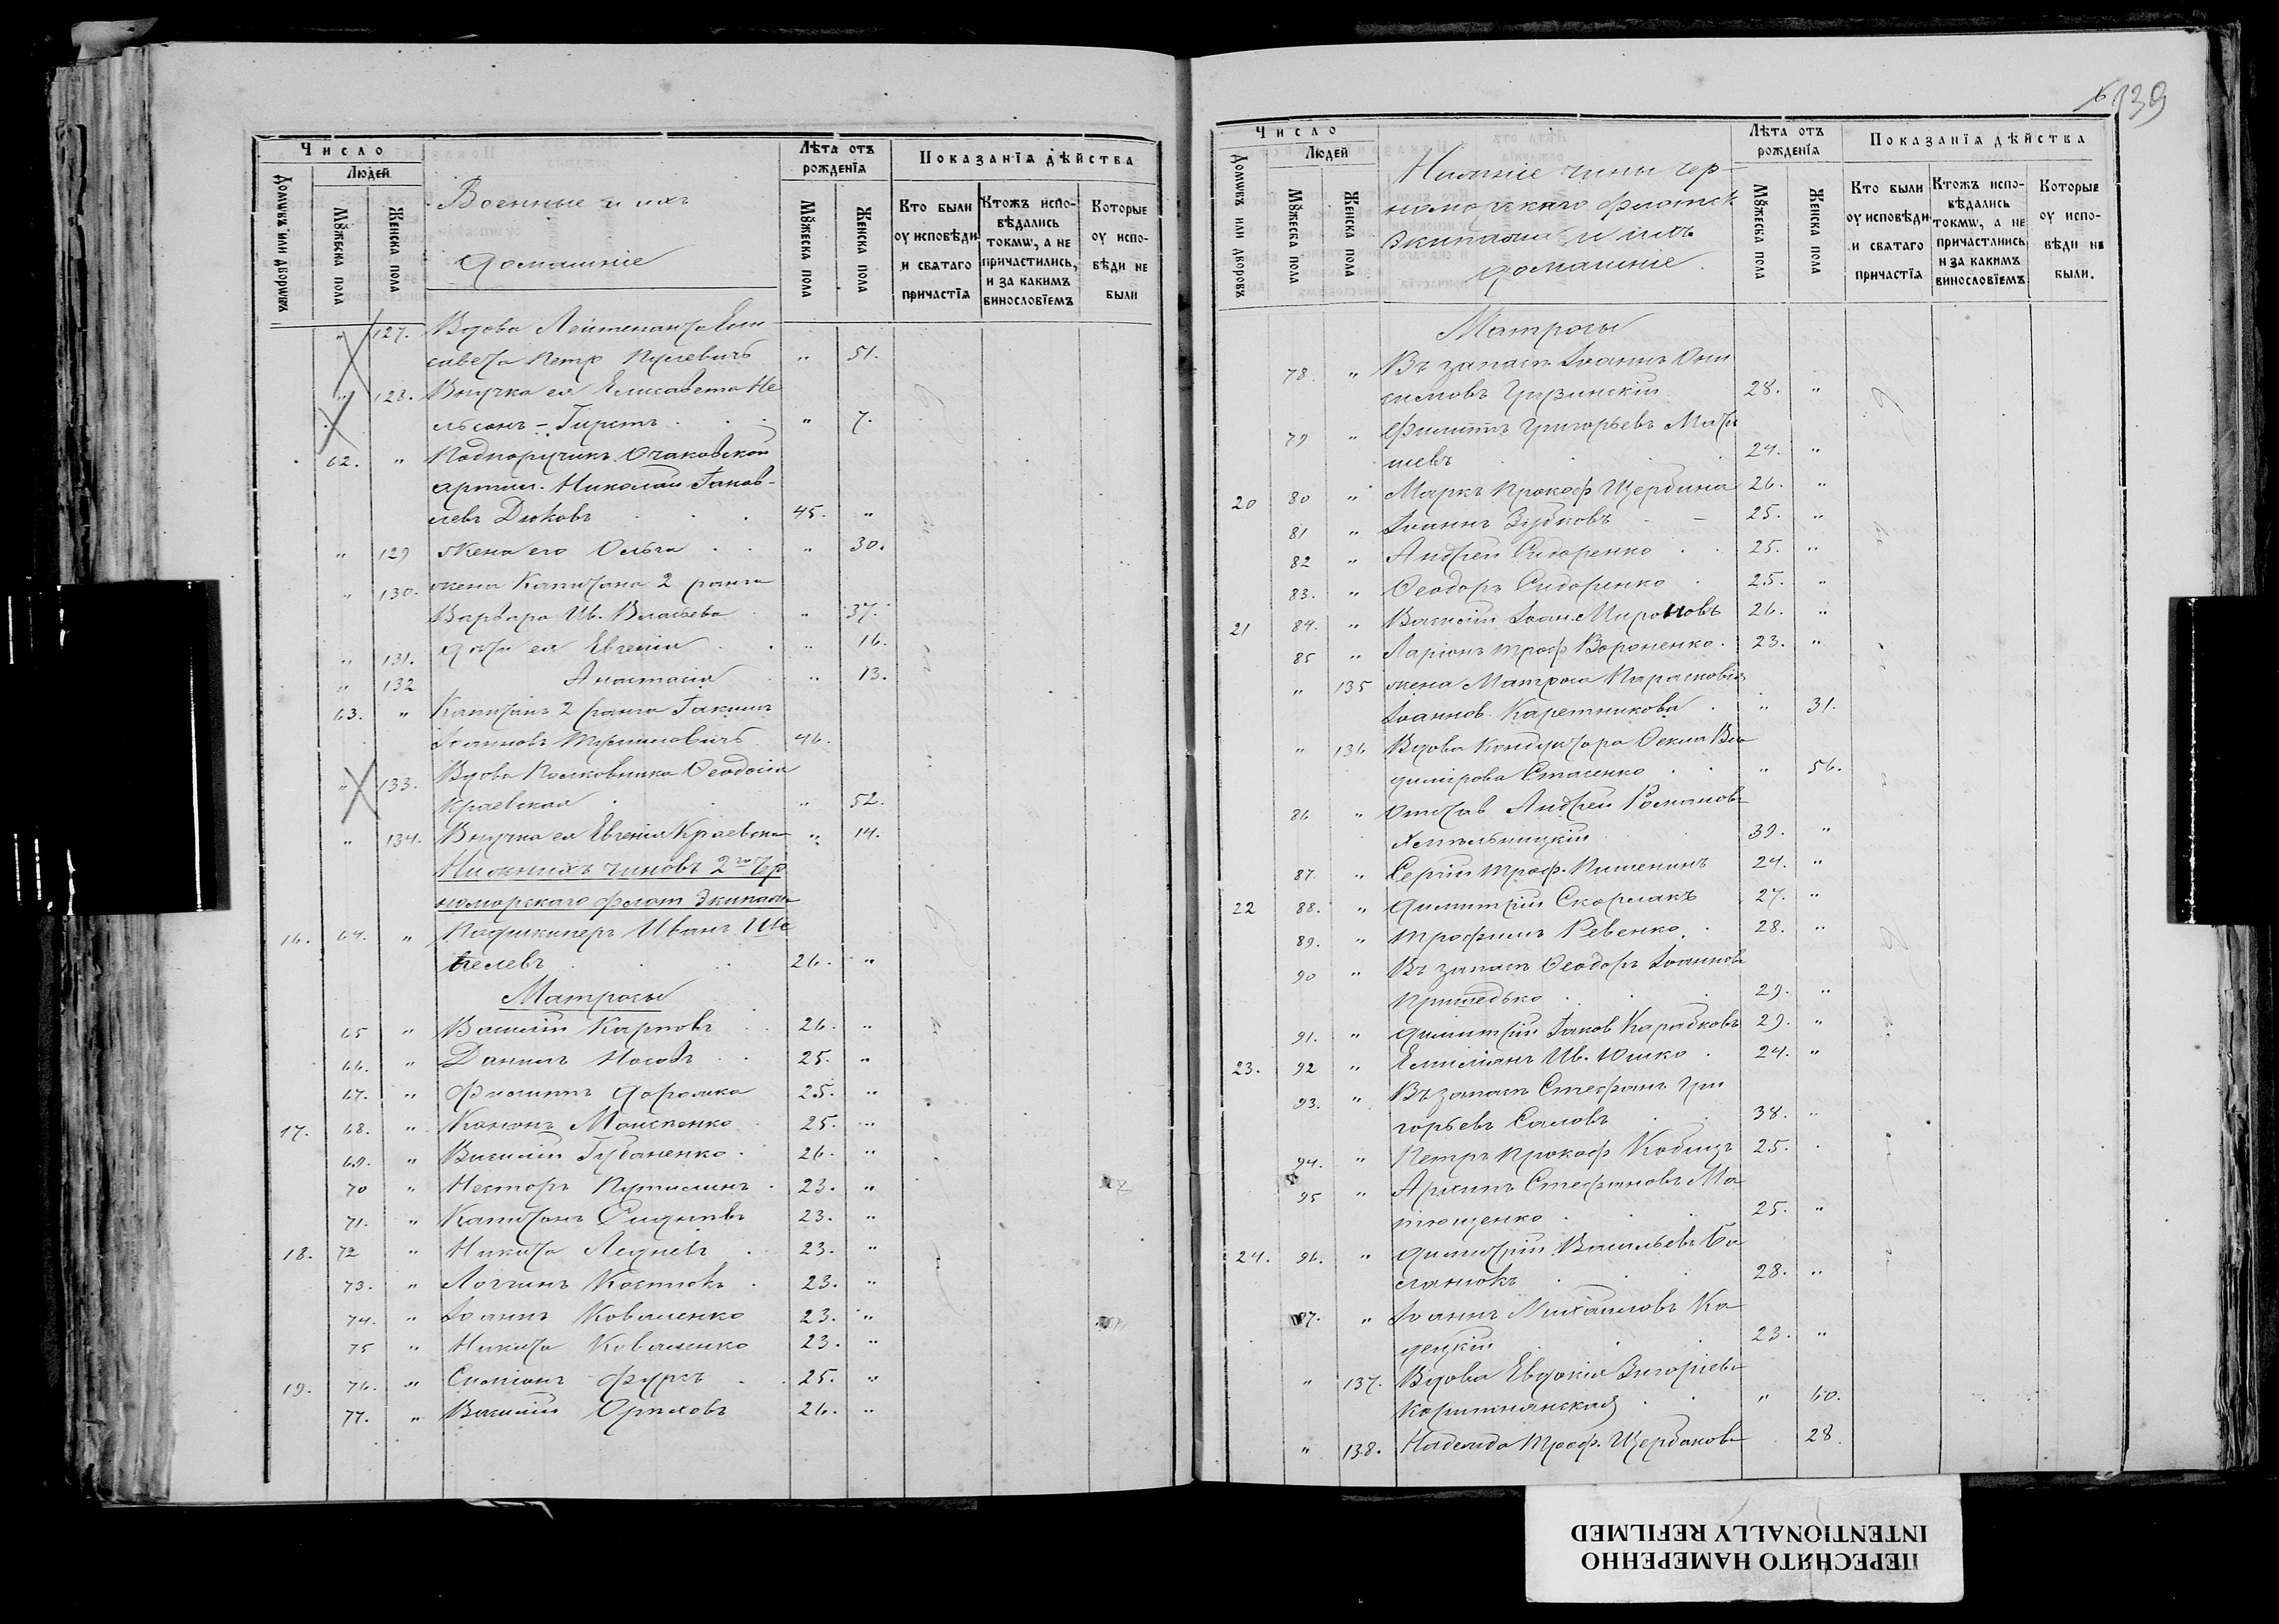 Число
Людей
Домѡвъ или дворѡвъ
Мꙋжеска пола
Женска пола
Военные и ихъ
домашніе
Лѣта отъ
рожденїя
Мꙋжеска пола
Женска пола
Показанїя дѣйства
Кто были
оу исповѣди
и святаго
причастїя
Ктожъ испо-
вѣдались
токмѡ, а не
причастились,
и за какимъ
винословїемъ
Которые
оу испо-
вѣди не
были
„ 127. Вдова Лейтенанта Ели-
савета Петр „ 51.
„ 128. Внучка ея Елисавета Не
льсонъ-Гирстъ „ 7.
62. „ Подпоручикъ Очаковской
артил. Николай Іаков-
левъ Дюковъ 45. „
„ 129 жена его Ольга „ 30.
„ 130. жена Капитана 2 ранга
Варвара Ив. Власьева „ 37.
„ 131. дочь ея Евгенія „ 16.
„ 132 Анастасія „ 13.
63. „ Капитанъ 2 ранга Іакимъ
Іоанновъ 46.
„ 133. Вдова Полковника Ѳеодосія
Краевская „ 52.
„ 134. Внучка ея Евгенія Краевская „ 14.
Нижнихъ чиновъ 2го Чер
номорскаго флот Экипажа
16. 64. „ Подшкиперъ Иванъ Ше
пелевъ 26. „
Матросы
65 „ Василій Карповъ 26. „
66. „ Даніилъ Носовъ 25. „
67. „ Филиппъ 25. „
17. 68. „ Кононъ Моисеенко 25. „
69. „ Василій Губаненко 26. „
70 „ Несторъ Путилинъ 23. „
71. „ Капитонъ 23. „
18. 72 „ Никита Леднёвъ 23. „
73. „ Логгинъ Костюкъ 23. „
74. „ Іоаннъ Коваленко 23. „
75 „ Никита Коваленко 23. „
19. 76. „ Симеонъ Фурсъ 25. „
77. „ Василій Орѣховъ 26. „
139
Число
Людей
Домѡвъ или дворовъ
Мꙋжеска пола
Женска пола
Нижніе чины Чер-
номорскаго флотск
Экипажа и ихъ
домашніе.
Лѣта отъ
рожденїя
Мꙋжеска пола
Женска пола
Показанїя дѣйства
Кто были
оу исповѣди
и святаго
причастїя
Ктожъ испо-
вѣдались
токмѡ, а не
причастились
и за какимъ
винословїемъ
Которые
оу испо-
вѣди не
были.
Матросы
78. „ Въ запасѣ Іоаннъ Они
симовъ Грузинскій 28. „
79 „ Филиппъ Григорьевъ
шевъ 24. „
20 80 „ Маркъ Прокоф Щербина 26. „
81 „ Іоаннъ Зубковъ 25. „
82 „ Андрей Сидоренко 25. „
83. „ Ѳеодоръ Сидоренко 25. „
21 84. „ Василій Іоан. Мироновъ 26. „
85 „ Ларіонъ Троф Вороненко 23. „
„ 135 жена Матроса Параскевія
Іоаннов. Каретникова „ 31.
„ 136 Вдова Кондуктора Ѳекла Вла
димірова Стасенко „ 56.
86 „ Отстав Андрей Романовъ
Хмѣльницкій 39. „
87. „ Сергій Троф. Пишенинъ 24. „
22 88. „ Димитрій Скорлакъ 27. „
89. „ Трофимъ Ревенко 28. „
90 „ Въ запасѣ Ѳеодоръ Іоанновъ
Пришедько 29. „
91. „ Димитрій Іаков Карабковъ 29. „
23. 92 „ Емиліанъ Ив. Юшко 24. „
93. „ Въ запасѣ Стефанъ Гри
горьевъ Саловъ 38. „
94. „ Петръ Прокоф Кобецъ 25.
95 „ Архипъ Стефановъ Ма
тющенко 25. „
24. 96. „ Димитрій Васильевъ Ба
ланюкъ 28. „
97. „ Іоаннъ Михайловъ Ка
децкій 23. „
„ 137. Вдова Евдокія Григоріева
„ 60.
„ 138. Надежда Троф. Щербакова 28.
ПЕРЕСНЯТО НАМЕРЕННО
INTENTIONALLY REFILMED